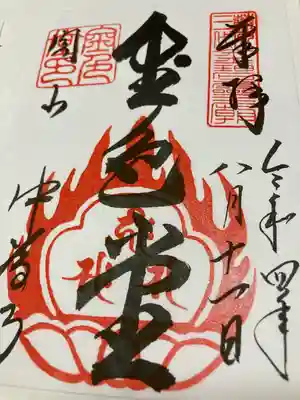 奉拝
令和四年
八月十一日
金色堂
関山
中尊寺
金色